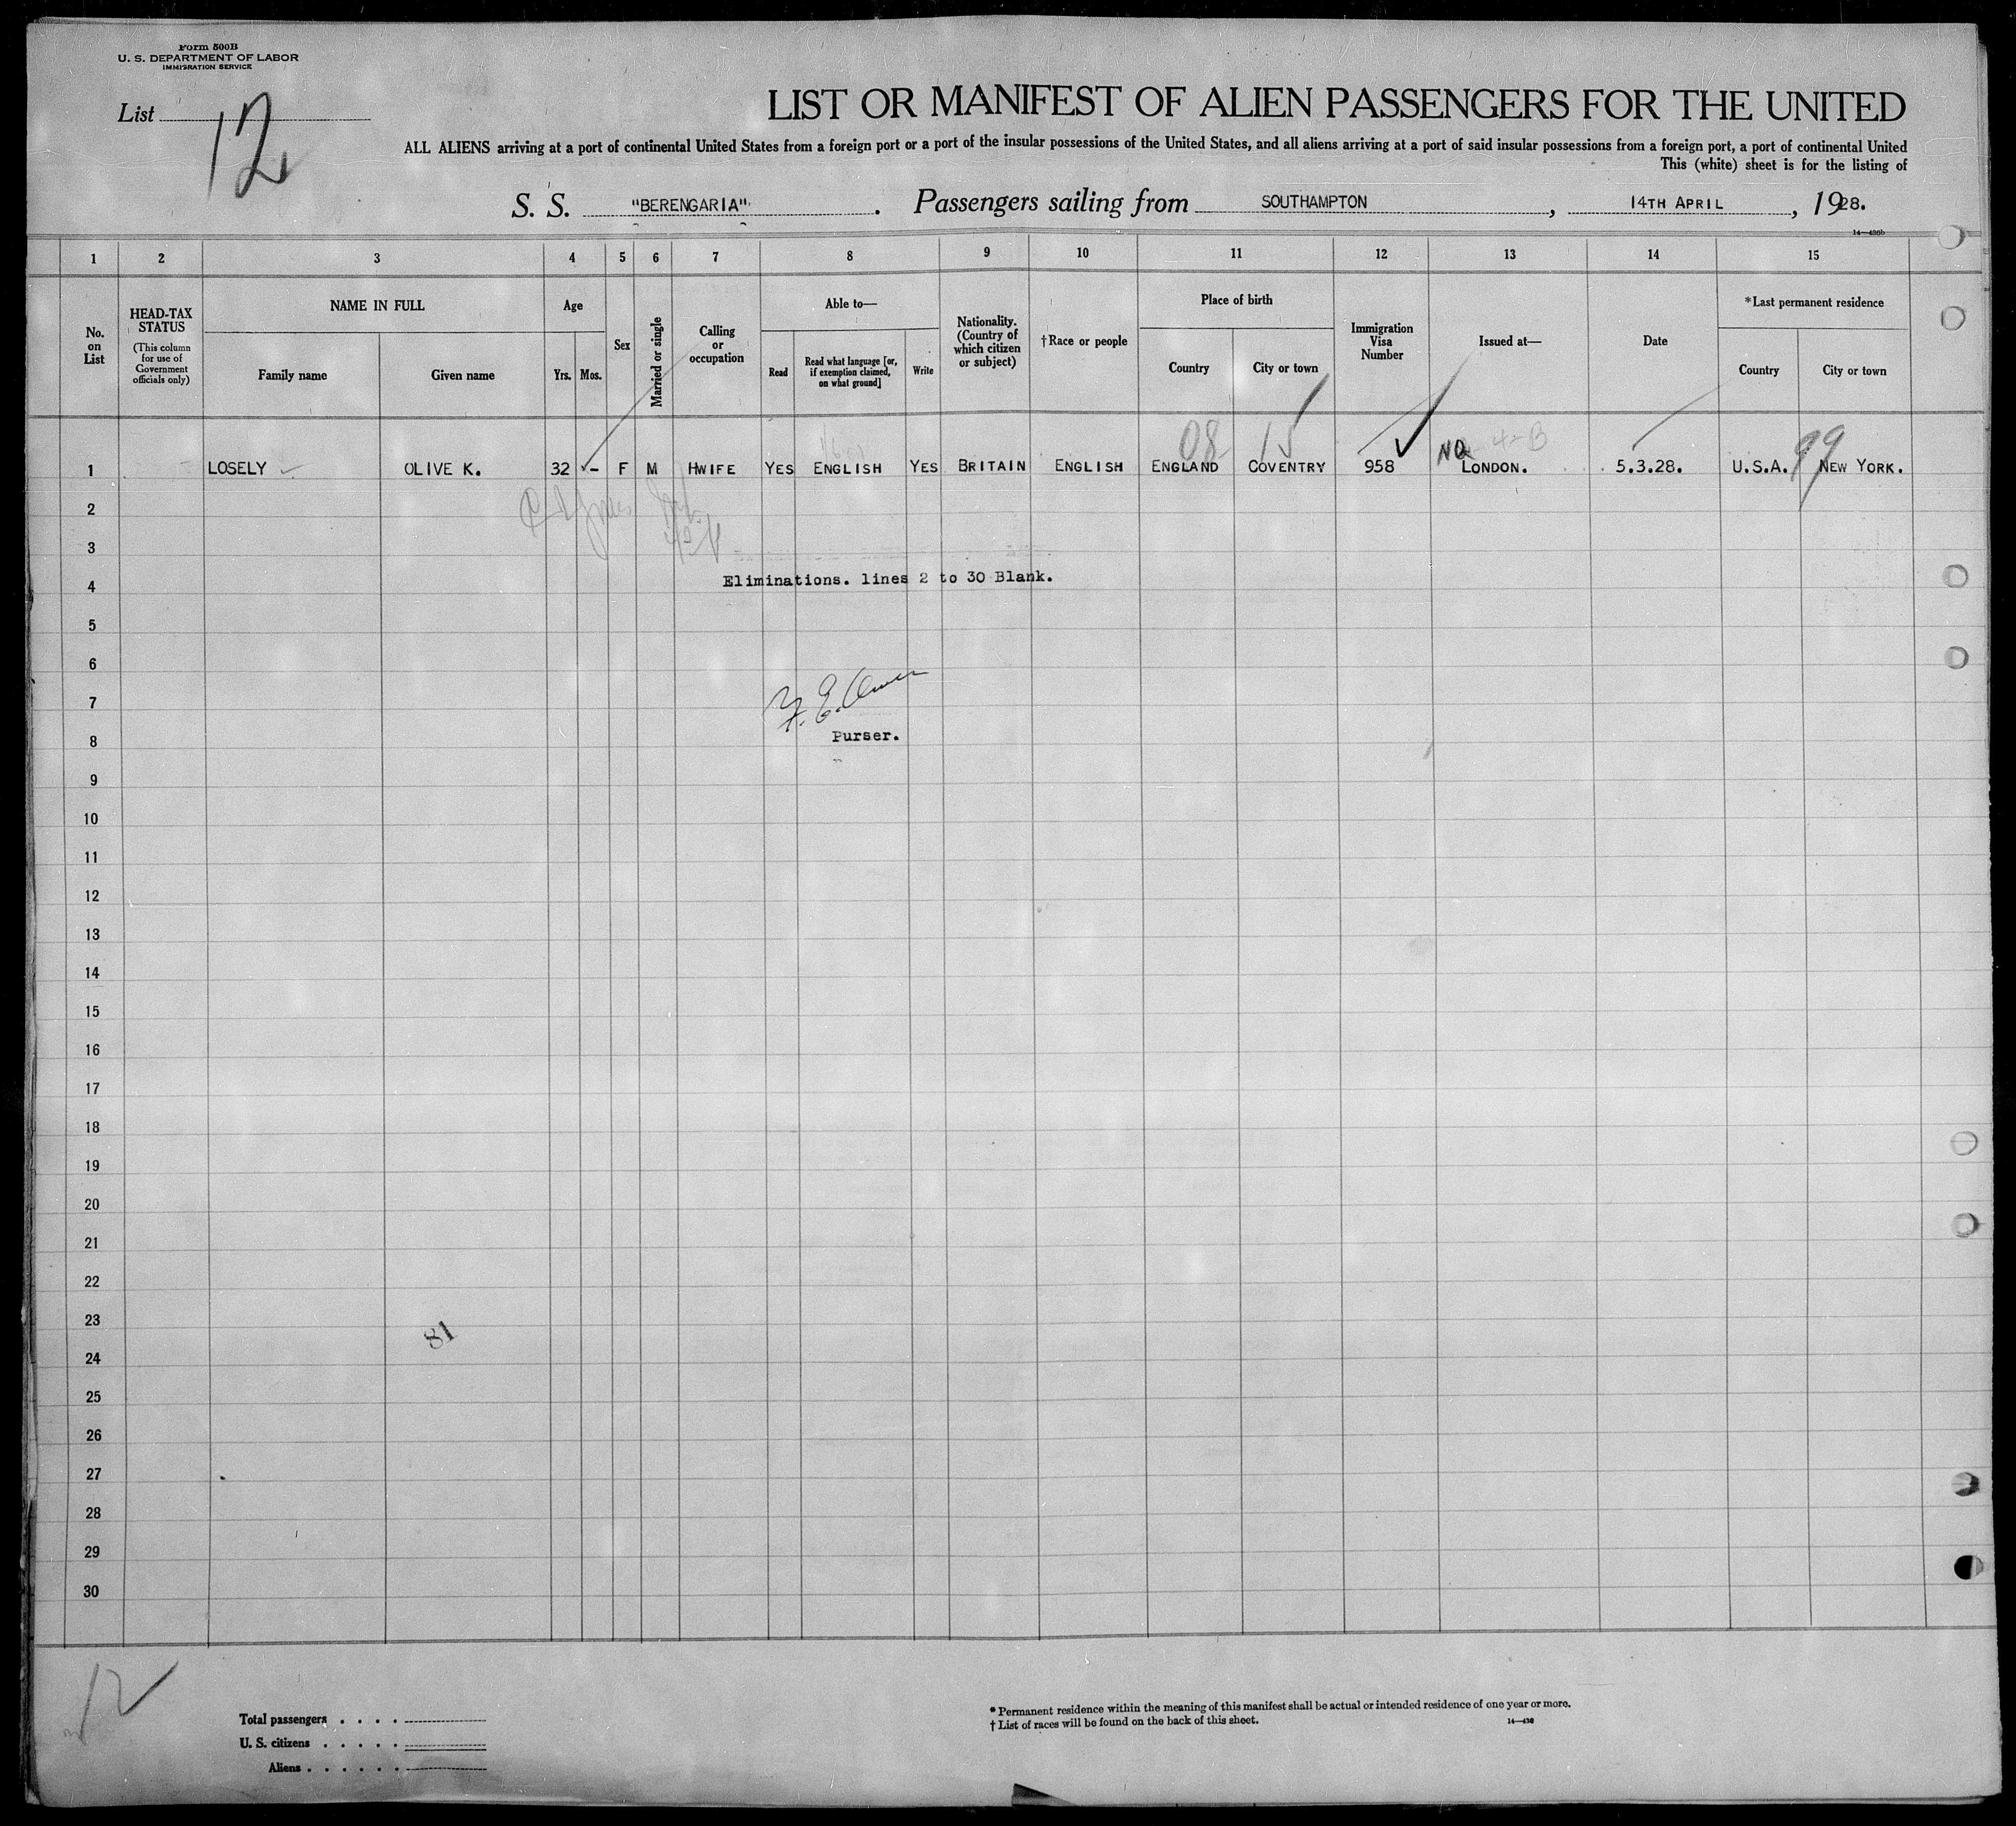 Form 500B
U. S. DEPARTMENT OF LABOR
IMMIGRATION SERVICE
List 12
LIST OR MANIFEST OF ALIEN PASSENGERS FOR THE UNITED
ALL ALIENS arriving at a port of continental United States from a foreign port or a port of the insular possessions of the United States, and all aliens arriving at a port of said insular possessions from a foreign port, a port of continental United
This (white) sheet is for the listing of
S. S. "BERENGARIA". Passengers sailing from SOUTHAMPTON, 14TH APRIL, 1928.
14—436b
1 2 3 4 5 6 7 8 9 10 11 12 13 14 15
No. on List
HEAD-TAX STATUS (This column for use of Government officials only)
NAME IN FULL
Family name
Given name
Age
Yrs. Mos.
Sex
Married or single
Calling or occupation
Able to—
Read
Read what language [or, if exemption claimed, on what ground]
Write
Nationality. (Country of which citizen or subject)
†Race or people
Place of birth
Country
City or town
Immigration Visa Number
Issued at—
Date
*Last permanent residence
Country
City or town
08 15 NQ 4-B 99
1 LOSELY OLIVE K. 32 - F M HWIFE YES ENGLISH YES BRITAIN ENGLISH ENGLAND COVENTRY 958 LONDON. 5.3.28. U.S.A. NEW YORK.
2
3
4
Eliminations. lines 2 to 30 Blank.
5
6
7
8
Purser.
9
10
11
12
13
14
15
16
17
18
19
20
21
22
23
81
24
25
26
27
28
29
30
12
Total passengers . . . .
U. S. citizens . . . . .
Aliens . . . . . .
* Permanent residence within the meaning of this manifest shall be actual or intended residence of one year or more.
† List of races will be found on the back of this sheet.
14—436